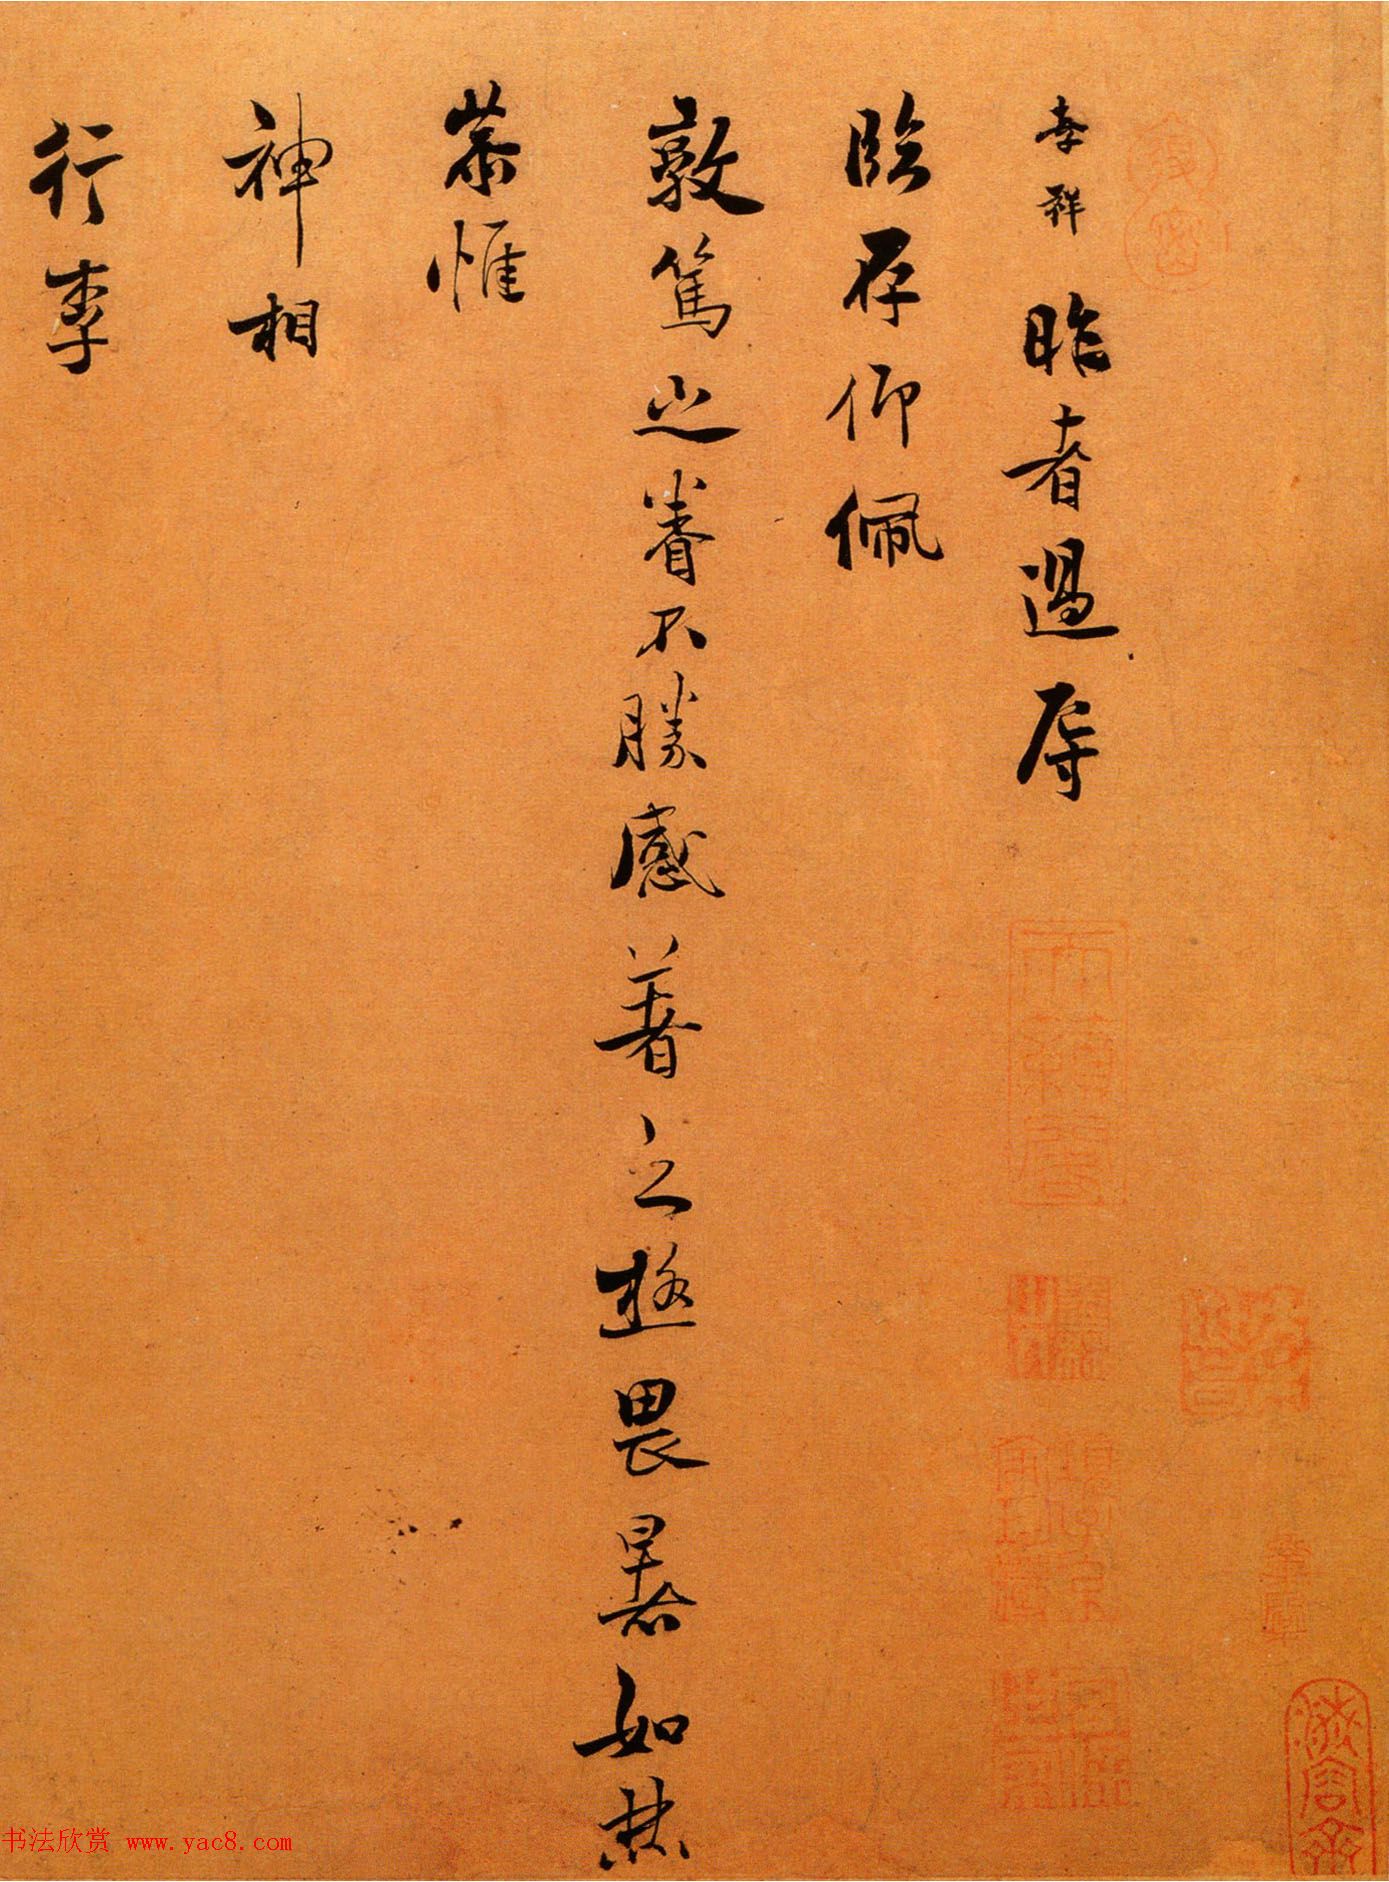 孝祥昨者過辱
臨存仰佩
敦篤之眷不勝感著之極畏暑如焚
恭惟
神相
行李
书法欣赏 www.yac8.com